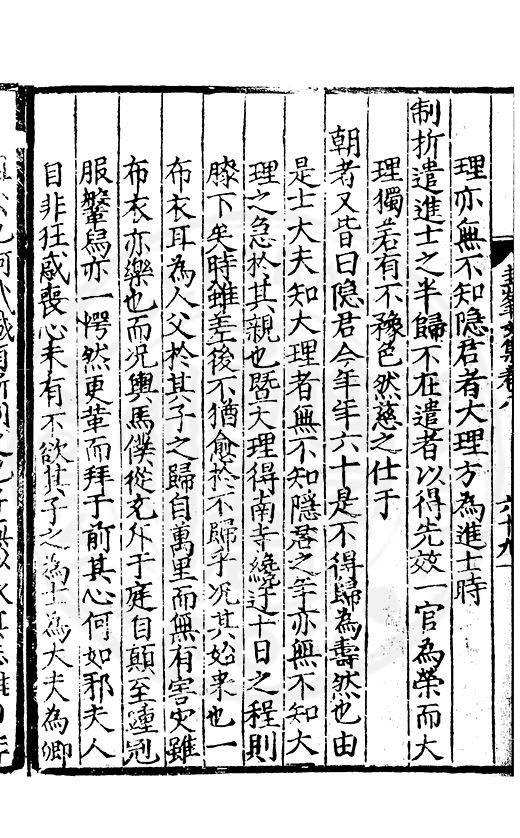 理亦無不知隐君者大理方為進士時
制折遣進士之半歸不在遣者以得先效一官為榮而大
理獨若有不豫色然慈之仕于
朝者又皆曰隐君今年年六十是不得歸為壽然也由
是士大夫知大理者無不知隱君之年亦無不知大
理之急於其親也暨大理得南寺繞迂十日之程則
膝下矣時雖差後不猶愈於不歸乎况其始来也一
布衣耳為人父於其子之歸自萬里而無有害灾雖
布衣亦樂也而况輿馬僕從充斥于庭自顛至踵冠
服鞶舄亦一愕然更革而拜于前其心何如邪夫人
目非狂惑喪心未有不欲其子之為士為大夫為卿